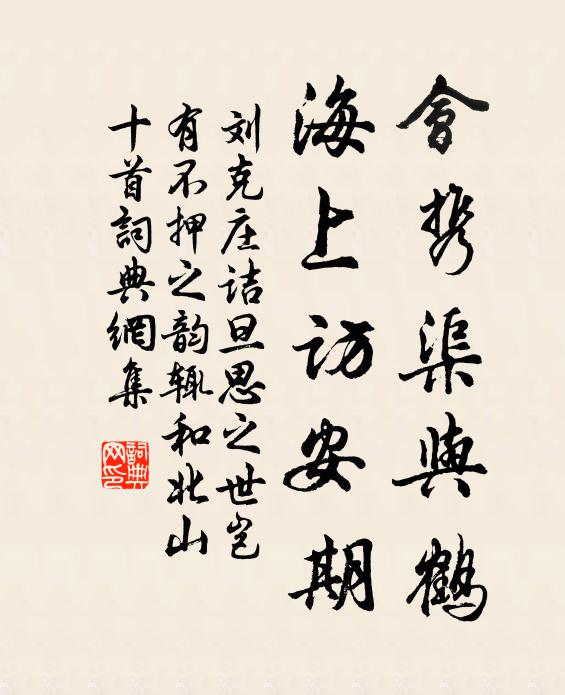 會携渠與鶴
海上访安期
刘克庄诘旦思之世岂
有不押之韵辄和北山
十首詞典網集
詞典网印